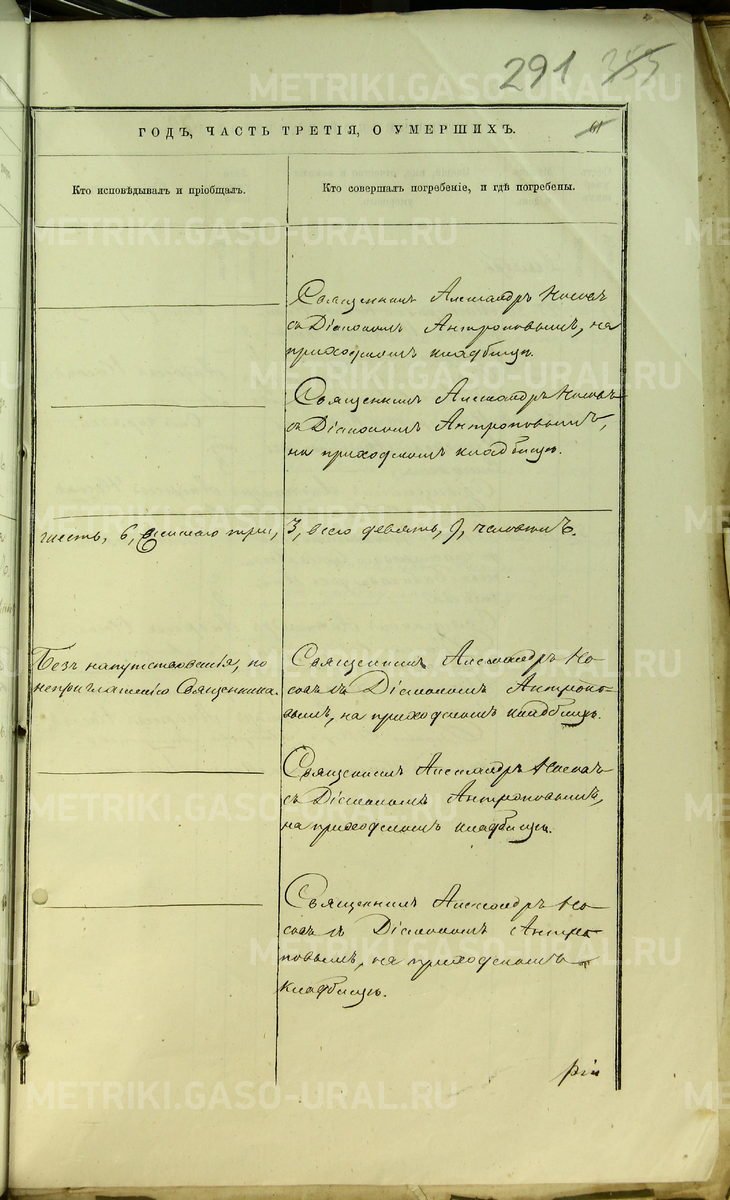 291 355
ГОДЪ, ЧАСТЬ ТРЕТІЯ, О УМЕРШИХЪ.
61
Кто исповѣдывалъ и пріобщалъ.
Кто совершалъ погребеніе, и гдѣ погребены.
Священникъ Александръ Носовъ
съ Діакономъ Антроповымъ, на
приходскомъ кладбищѣ.
Священникъ Александръ Носовъ
съ Діакономъ Антроповымъ,
на приходскомъ кладбищѣ.
шесть, 6, женскаго три, 3, всего девять, 9, человѣкъ.
Безъ напутствованія, по
неприглашенію Священника.
Священникъ Александръ Но-
совъ съ Діакономъ Антропо-
вымъ, на приходскомъ кладбищѣ.
Священникъ Александръ Носовъ
съ Діакономъ Антроповымъ,
на приходскомъ кладбищѣ.
Священникъ Александръ Но-
совъ съ Діакономъ Антро-
повымъ, на приходскомъ
кладбищѣ.
METRIKI.GASO-URAL.RU